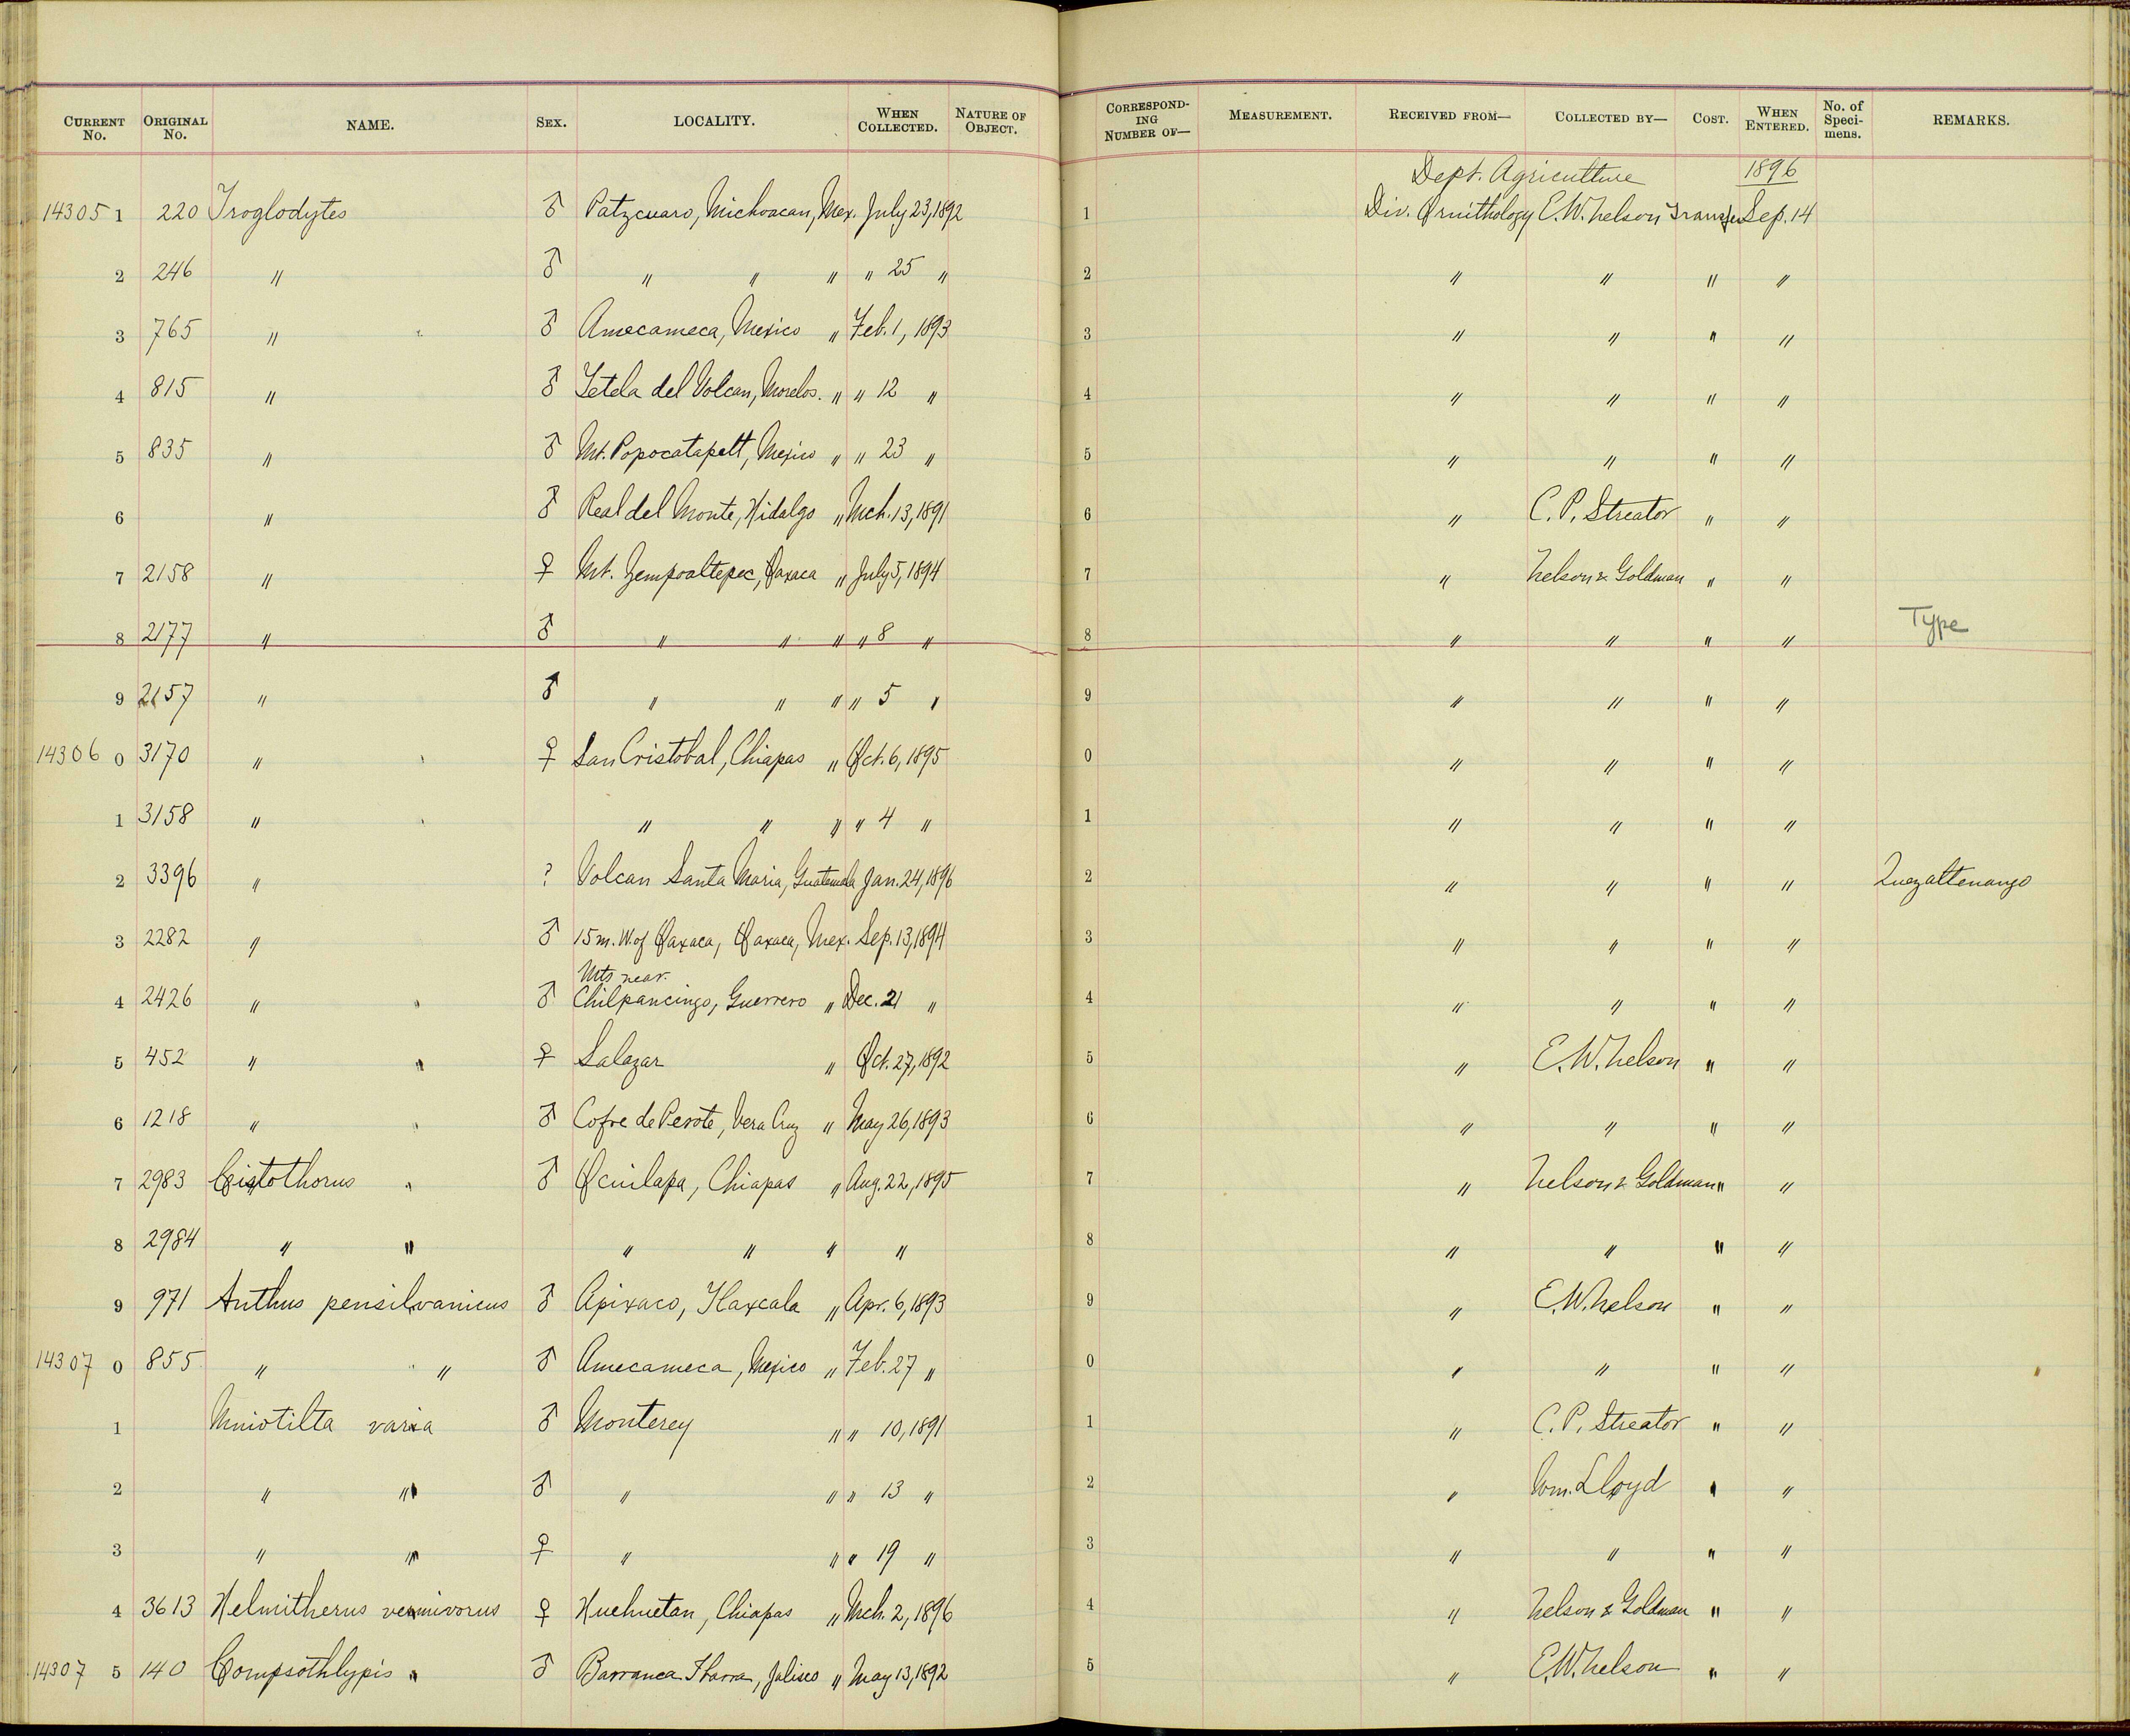 CURRENT No. ORIGINAL No. NAME. SEX. LOCALITY. WHEN COLLECTED. NATURE OF OBJECT. CORRESPONDING NUMBER OF— MEASUREMENT. RECEIVED FROM— COLLECTED BY— COST. WHEN ENTERED. No. of Specimens. REMARKS.
Dept. Agriculture 1896
14305 1 220 Troglodytes ♂ Patzcuaro, Michoacan, Mex. July 23, 1892 1 Div. Ornithology E.W. Nelson Transfer Sep. 14
2 246 " ♂ " " " " 25 " 2 " " " "
3 765 " ♂ Amecameca, Mexico " Feb. 1, 1893 3 " " " "
4 815 " ♂ Tetela del Volcan, Morelos. " " 12 " 4 " " " "
5 835 " ♂ Mt. Popocatapetl, Mexico " " 23 " 5 " " " "
6 " ♂ Real del Monte, Hidalgo " Mch. 13, 1891 6 " C. P. Streator " "
7 2158 " ♀ Mt. Zempoaltepec, Oaxaca " July 5, 1894 7 " Nelson & Goldman " "
8 2177 " ♂ " " " " 8 " 8 " " " " Type
9 2157 " ♂ " " " " 5 " 9 " " " "
14306 0 3170 " ♀ San Cristobal, Chiapas " Oct. 6, 1895 0 " " " "
1 3158 " " " " " 4 " 1 " " " "
2 3396 " ? Volcan Santa Maria, Guatemala Jan. 24, 1896 2 " " " " Quezaltenango
3 2282 " ♂ 15 m. W. of Oaxaca, Oaxaca, Mex. Sep. 13, 1894 3 " " " "
Mts near
4 2426 " ♂ Chilpancingo, Guerrero " Dec. 21 " 4 " " " "
5 452 " " ♀ Salazar " Oct. 27, 1892 5 " E. W. Nelson " "
6 1218 " ♂ Cofre de Perote, Vera Cruz " May 26, 1893 6 " " " "
7 2983 Cistothorus " ♂ Ocuilapa, Chiapas " Aug. 22, 1895 7 " Nelson & Goldman " "
8 2984 " " " " " " 8 " " " "
9 971 Anthus pensilvanicus ♂ Apixaco, Tlaxcala " Apr. 6, 1893 9 " E. W. Nelson " "
14307 0 855 " " ♂ Amecameca, Mexico " Feb. 27 " 0 " " " "
1 Mniotilta varia ♂ Monterey " " 10, 1891 1 " C. P. Streator " "
2 " " ♂ " " " 13 " 2 " Wm. Lloyd " "
3 " " ♀ " " " 19 " 3 " " " "
4 3613 Helmitherus vermivorus ♀ Huehuetan, Chiapas " Mch. 2, 1896 4 " Nelson & Goldman " "
14307 5 140 Compsothlypis " ♂ Barranca Ibarra, Jalisco " May 13, 1892 5 " E. W. Nelson " "